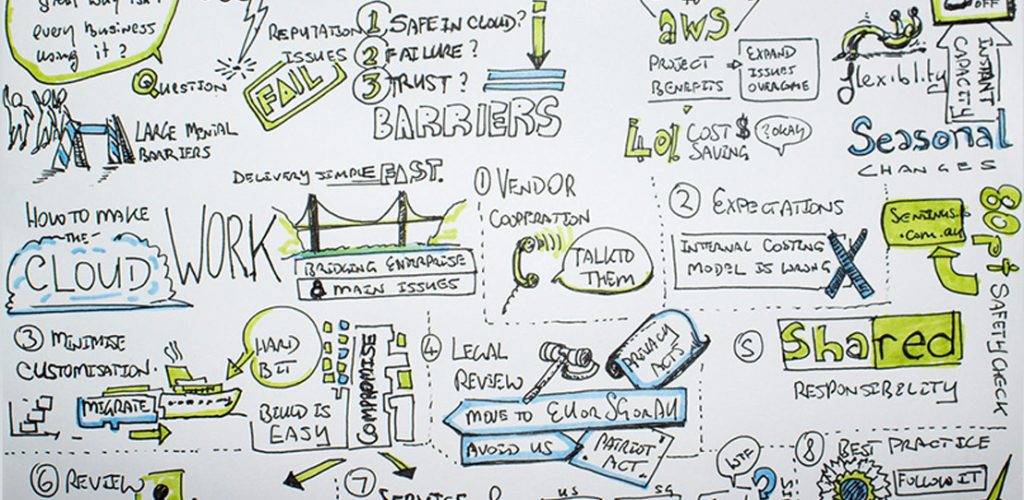 great why isn't
every business
using it?
QUESTION
LARGE MENTAL
BARRIERS
REPUTATION
ISSUES
FAIL
1 SAFE IN CLOUD?
2 FAILURE?
3 TRUST?
BARRIERS
aws
PROJECT
BENEFITS
EXPAND
ISSUES
40%
COST $
SAVING
?OKAY
flexiblity
OFF
INSTANT
CAPACITY
Seasonal
CHANGES
DELIVERY SIMPLE FAST.
HOW TO MAKE
THE
CLOUD
WORK
BRIDGING ENTERPRISE
& MAIN ISSUES
1 VENDOR
COOPERATION
TALK TO
THEM
2 EXPECTATIONS
INTERNAL COSTING
MODEL IS WRONG
.com.au
80pt
SAFETY CHECK
3 MINIMISE
CUSTOMISATION.
MIGRATE
HARD
BIT
BUILD IS
EASY
COMPROMISE
4 LEGAL
REVIEW
PRIVACY
ACTS
MOVE TO EU or SG or AU
AVOID US
PATRIOT
ACT.
5 Shared
RESPONSIBILITY
6 REVIEW
7
SERVICE
US
SG
WTF
?
8 BEST PRACTICE
FOLLOW IT